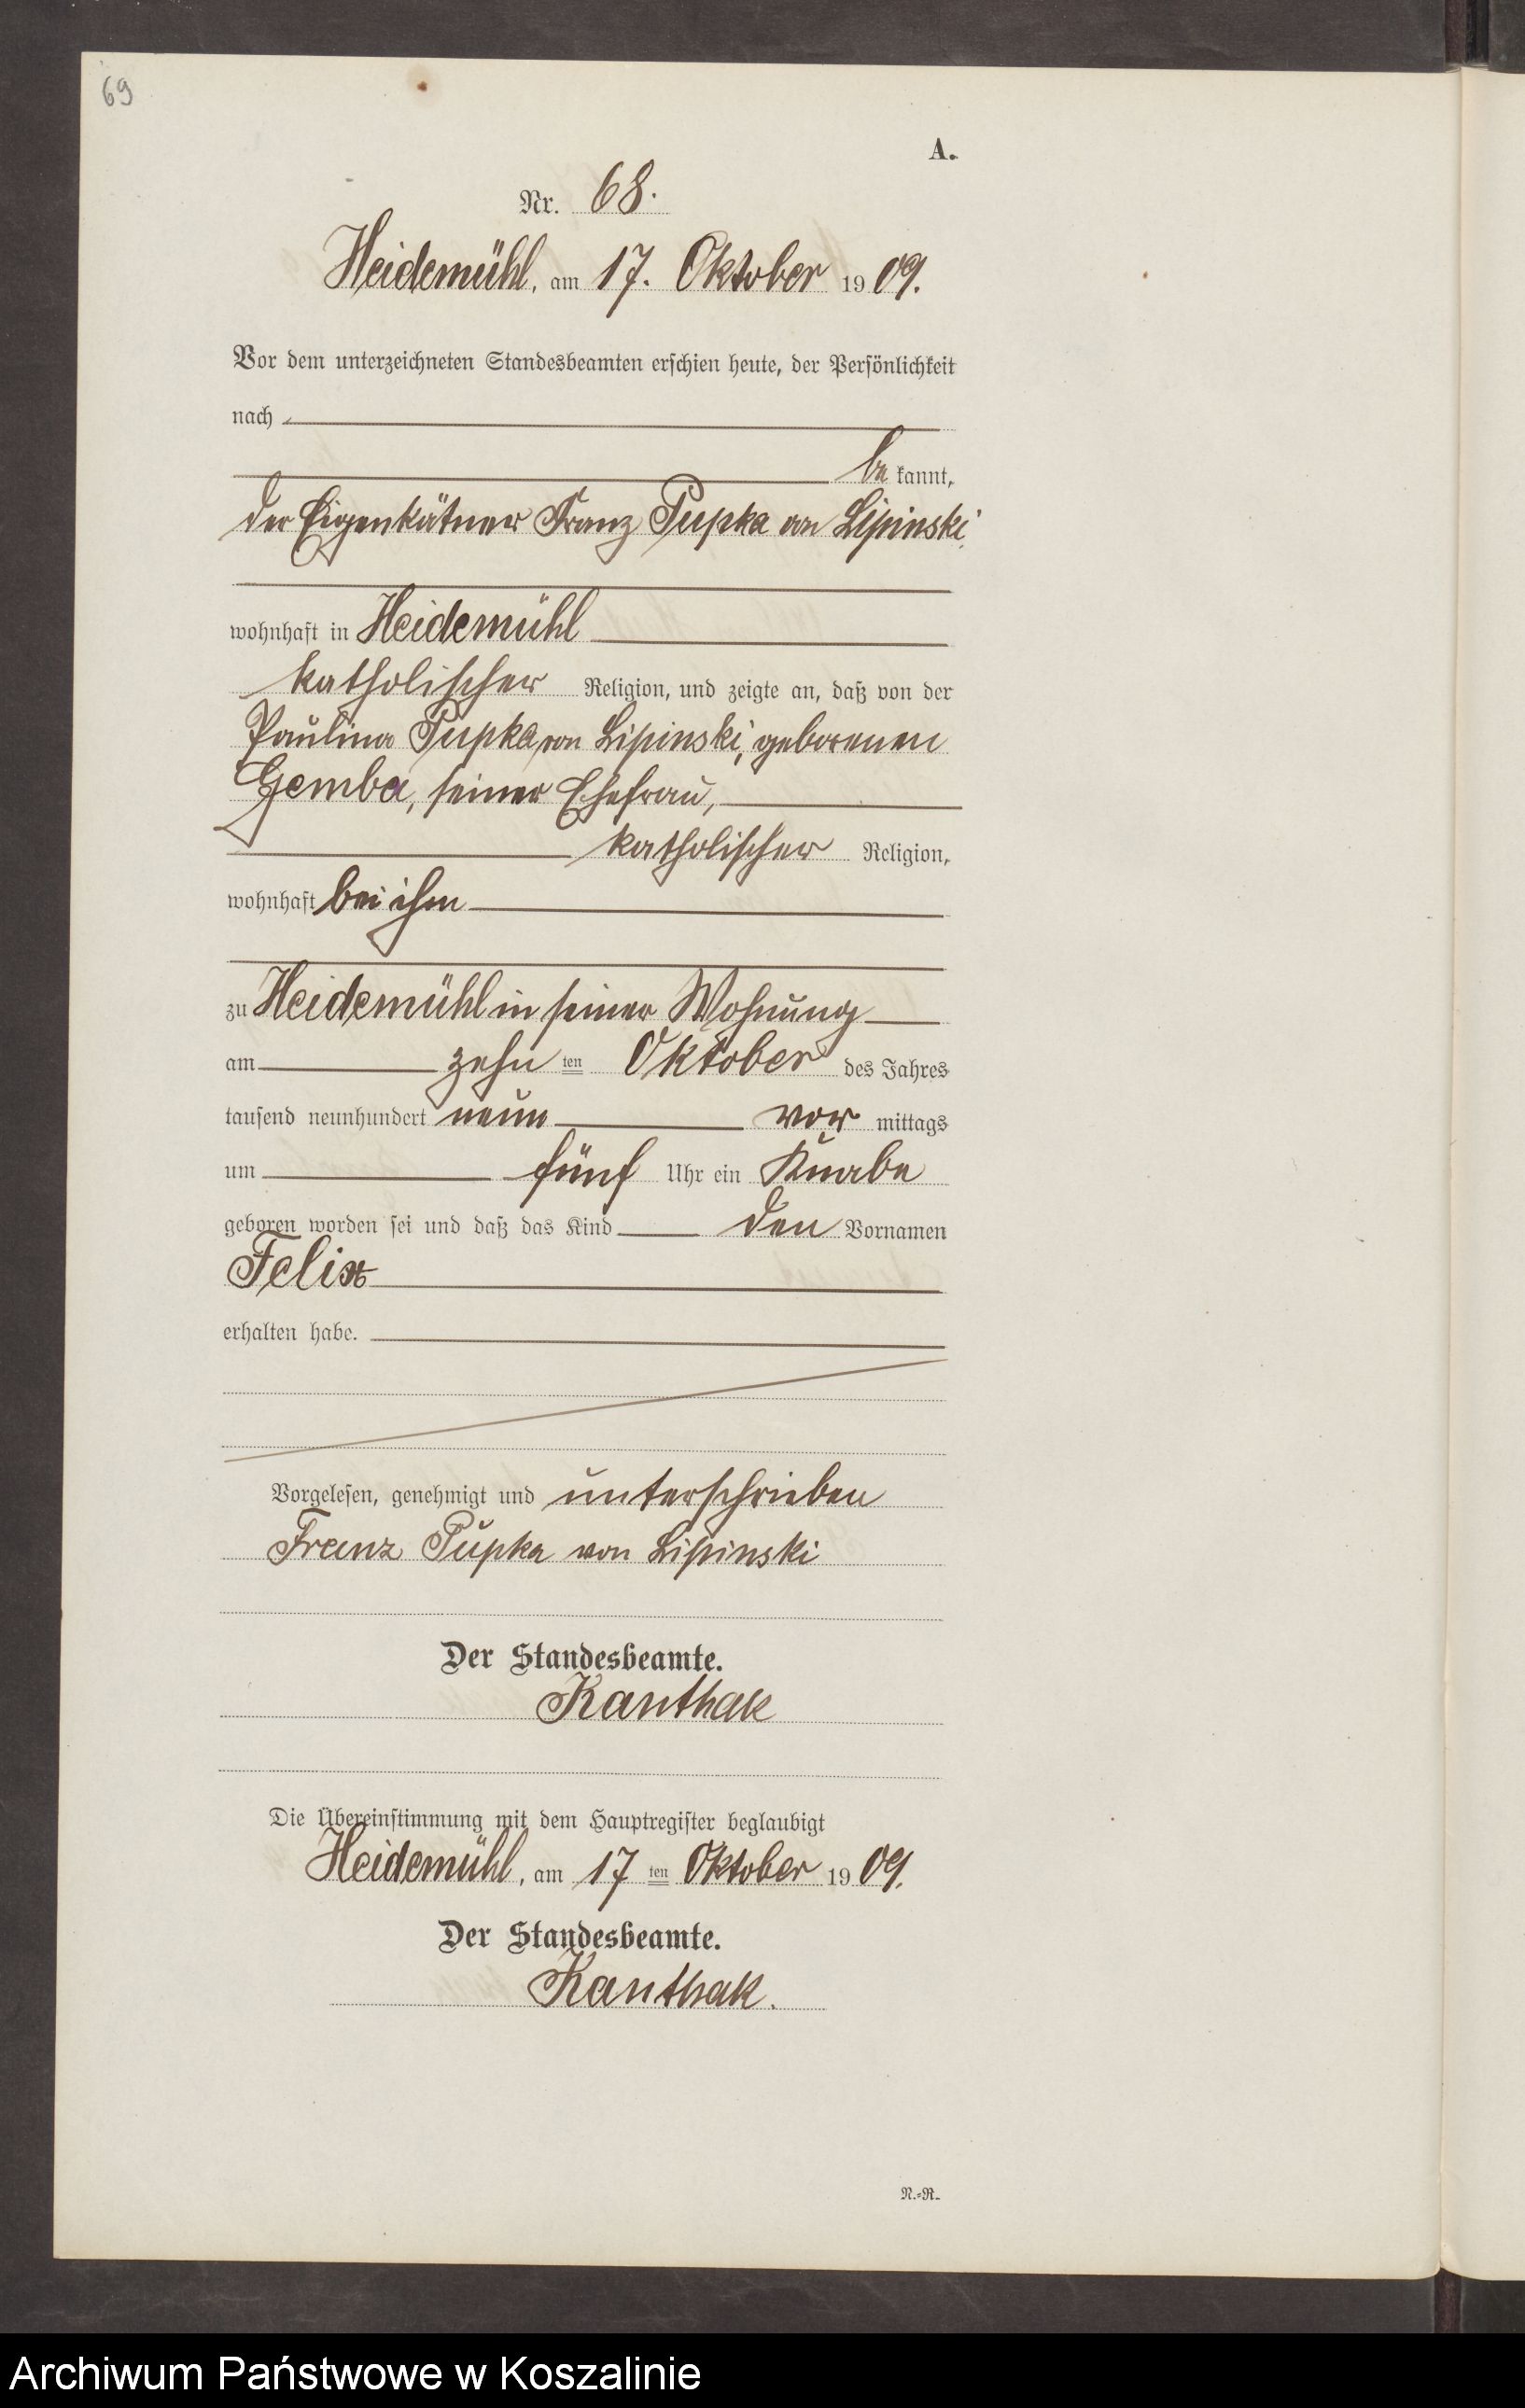 69
A.
Nr. 68.
Heidemühl, am 17. Oktober 1909.
Vor dem unterzeichneten Standesbeamten erschien heute, der Persönlichkeit
nach
be kannt,
der Eigenkätner Franz Pupka von Lipinski,
wohnhaft in Heidemühl
katholischer Religion, und zeigte an, daß von der
Paulina Pupka von Lipinski, geborenen
Gemba, seiner Ehefrau,
katholischer Religion,
wohnhaft bei ihm
zu Heidemühl in seiner Wohnung
am zehn ten Oktober des Jahres
tausend neunhundert neun vor mittags
um fünf Uhr ein Knabe
geboren worden sei und daß das Kind den Vornamen
Felix
erhalten habe.
Vorgelesen, genehmigt und unterschrieben
Franz Pupka von Lipinski
Der Standesbeamte.
Kanthak
Die Übereinstimmung mit dem Hauptregister beglaubigt
Heidemühl, am 17 ten Oktober 1909.
Der Standesbeamte.
Kanthak.
N.-R.
Archiwum Państwowe w Koszalinie